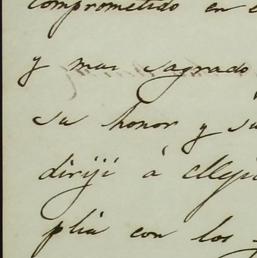 comprometido en
y mas sagrado
su honor y su
diriji á Meji
plia con los